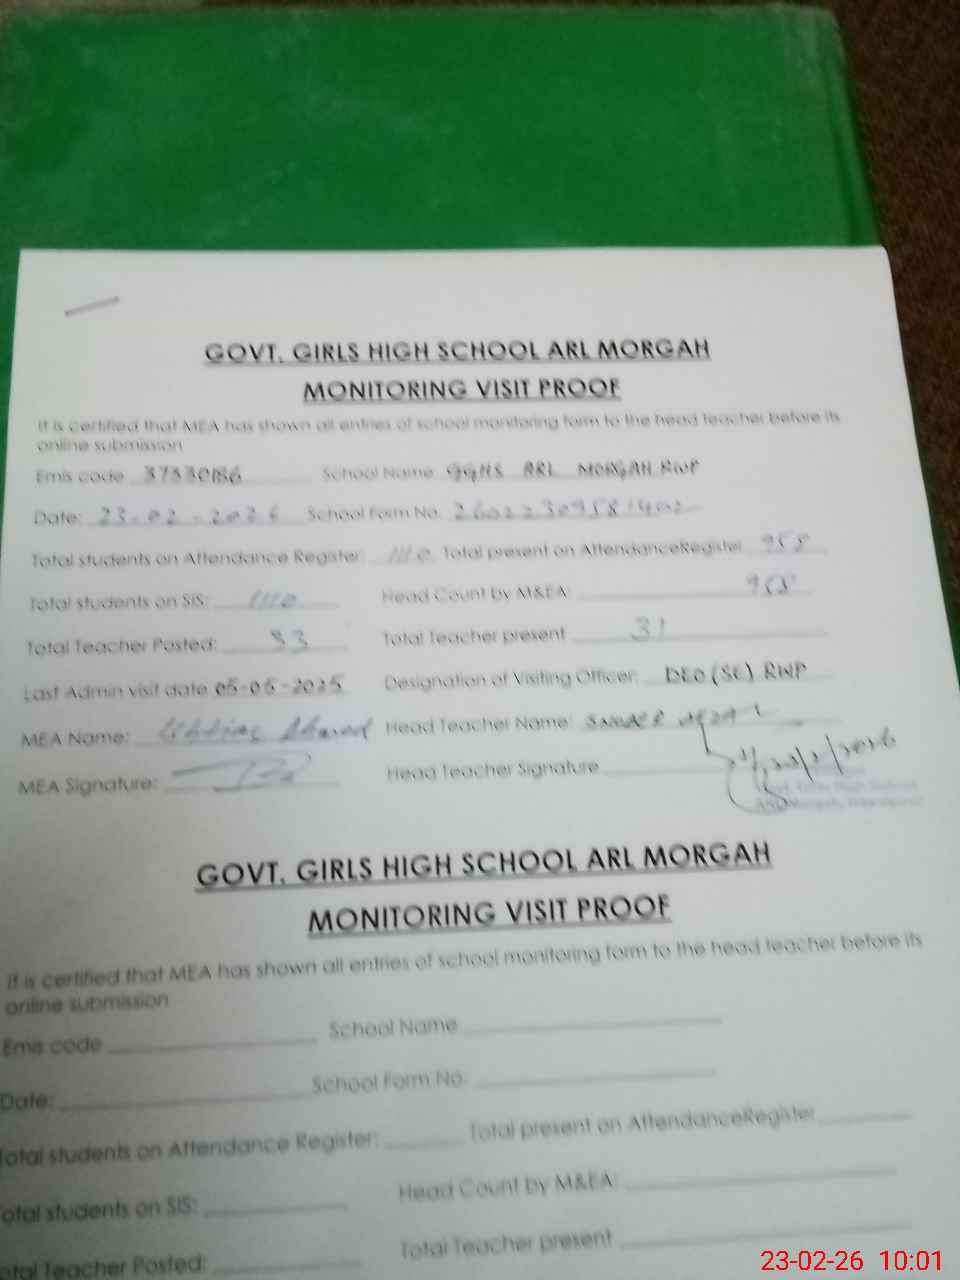 GOVT. GIRLS HIGH SCHOOL ARL MORGAH
MONITORING VISIT PROOF
It is certified that MEA has shown all entries of school monitoring form to the head teacher before its
online submission
Emis code 37330186 School Name GGHS ARL MORGAH RWP
Date: 23-02-2026 School Form No. 26022309581402
Total students on Attendance Register: 1110 Total present on AttendanceRegister 958
Total students on SIS: 1110 Head Count by M&EA: 958
Total Teacher Posted: 33 Total Teacher present 31
Last Admin visit date 05-05-2025 Designation of Visiting Officer: DEO (SE) RWP
MEA Name: Ahmed Head Teacher Name:
MEA Signature: Head Teacher Signature 23/2/2026
Govt. Girls High School
ARL Morgah, Rawalpindi
GOVT. GIRLS HIGH SCHOOL ARL MORGAH
MONITORING VISIT PROOF
It is certified that MEA has shown all entries of school monitoring form to the head teacher before its
online submission
Emis code School Name
Date: School Form No.
Total students on Attendance Register: Total present on AttendanceRegister
Total students on SIS: Head Count by M&EA:
Total Teacher Posted: Total Teacher present
23-02-26 10:01